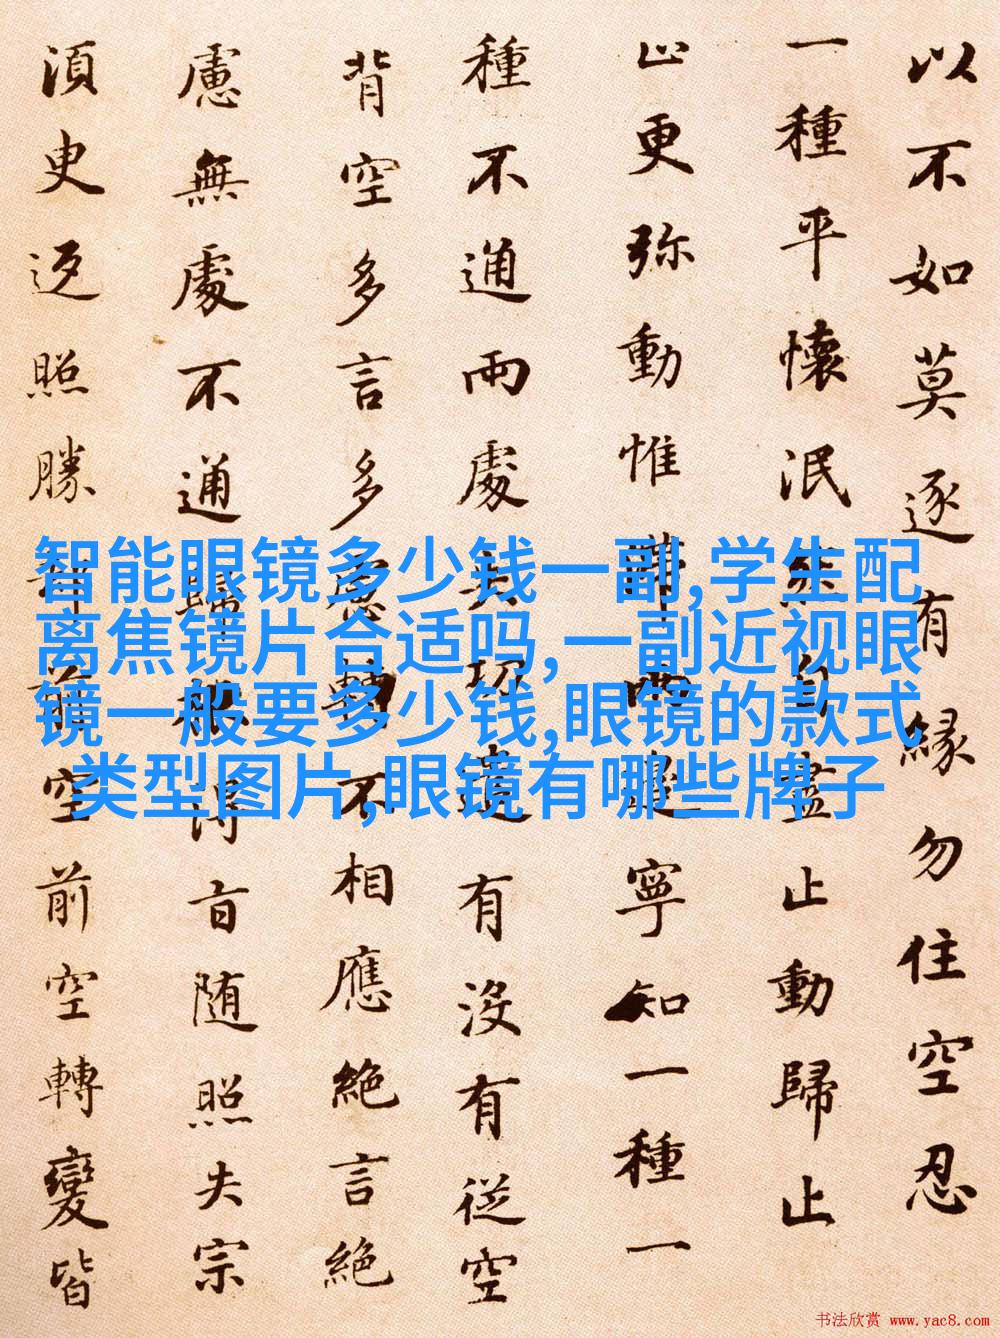 以不如莫逐有緣勿住空忍
一種平懷泯然自盡止動歸止
止更弥動惟滯兩邊寧知一種一
種不通兩處失功遣有沒有從空
背空多言多慮轉不相應絕言絕
慮無處不通歸根得旨随照失宗
須臾返照勝却前空前空轉變皆
智能眼镜多少钱一副,学生配
离焦镜片合适吗,一副近视眼
镜一般要多少钱,眼镜的款式
类型图片,眼镜有哪些牌子
书法欣赏 www.yac8.com